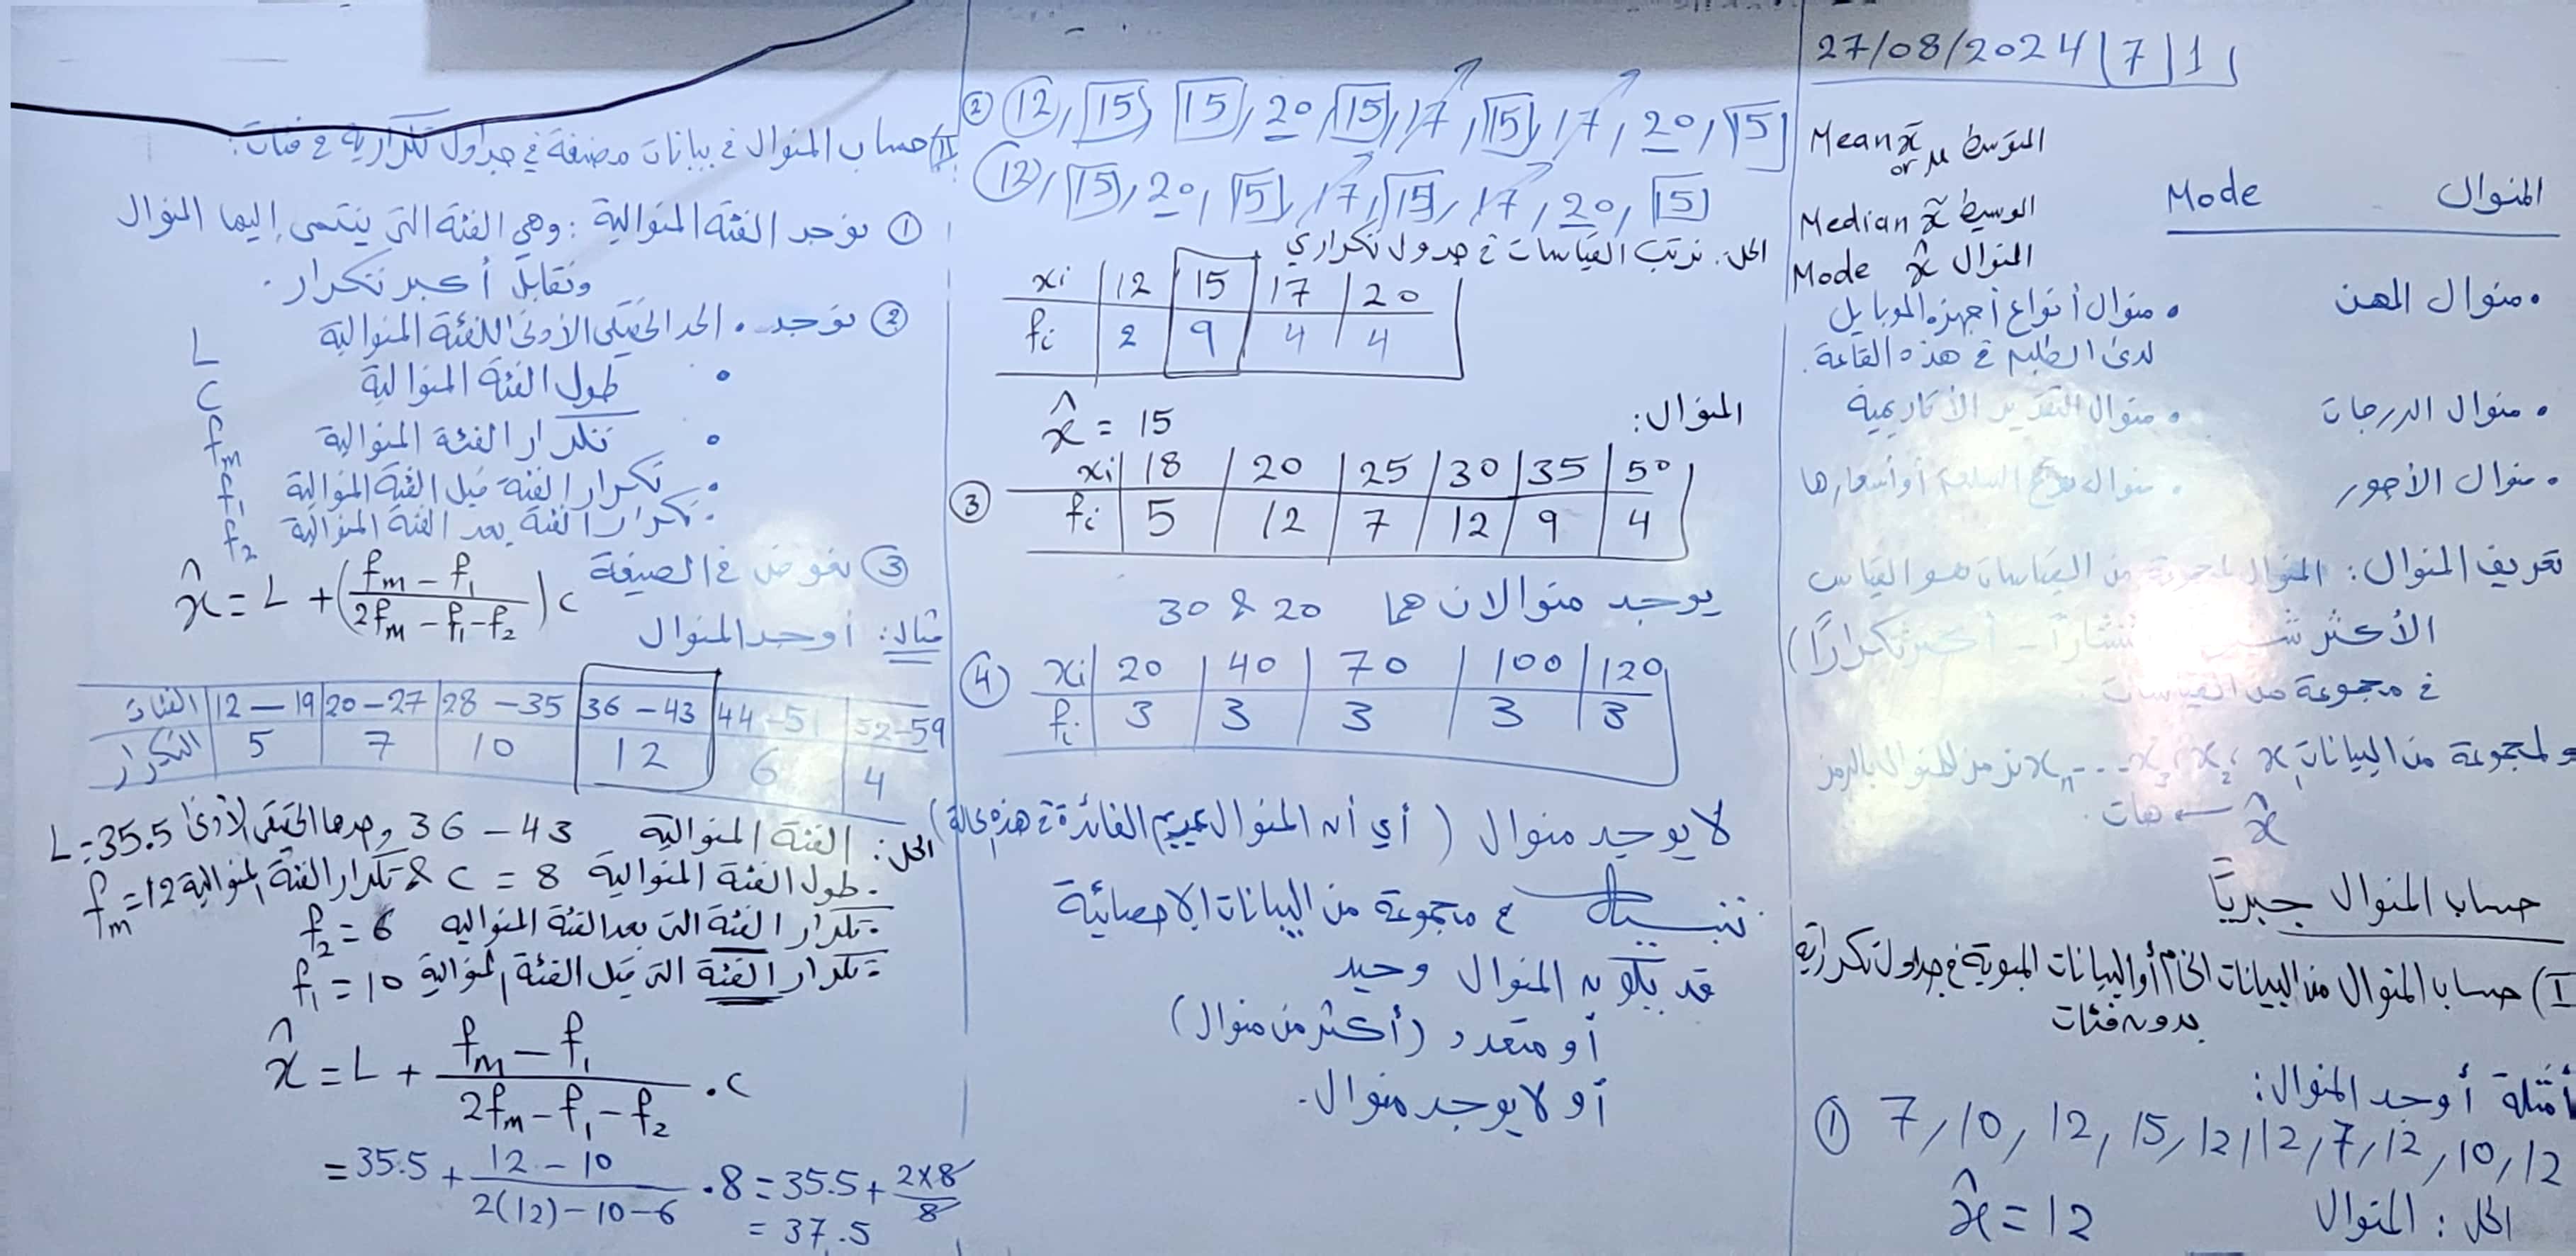 27/08/2024 | 7 | 1
Mean x̄ or μ المتوسط
Median x̃ الوسيط
Mode x̂ المنوال
المنوال Mode
• منوال المهن
• منوال أنواع أجهزة الموبايل
لدى الطلبة في هذه القاعة.
• منوال الدرجات
• منوال التقدير الأكاديمية
• منوال الأجور
• منوال السلعة أو أسعارها
تعريف المنوال: المنوال لمجموعة من القياسات هو القياس
الأكثر انتشاراً - أكثر تكراراً)
في مجموعة من القياسات
ولمجموعة من البيانات x₁, x₂, x₃, ... xₙ نرمز للمنوال بالرمز
x̂ ← هات.
حساب المنوال جبرياً
I) حساب المنوال من البيانات الخام أو البيانات المبوبة في جداول تكرارية
بدون فئات
أمثلة أوجد المنوال:
① 7, 10, 12, 15, 12, 12, 7, 12, 10, 12
الحل: المنوال x̂ = 12
② 12, 15, 15, 20, 15, 17, 15, 17, 20, 15
12, 15, 20, 15, 17, 15, 17, 20, 15
الحل: نرتب القياسات في جدول تكراري
xi | 12 | 15 | 17 | 20
fi | 2 | 9 | 4 | 4
المنوال: x̂ = 15
③ xi | 18 | 20 | 25 | 30 | 35 | 50
fi | 5 | 12 | 7 | 12 | 9 | 4
يوجد منوالان هما 20 & 30
④ xi | 20 | 40 | 70 | 100 | 120
fi | 3 | 3 | 3 | 3 | 3
لا يوجد منوال (أي أن المنوال عديم الفائدة في هذه الحالة)
تنبيه في مجموعة من البيانات الإحصائية
قد يكون المنوال وحيد
أو متعدد (أكثر من منوال)
أو لا يوجد منوال.
II) حساب المنوال في بيانات مصنفة في جداول تكرارية في فئات:
① نوجد الفئة المنوالية: وهي الفئة التي ينتمي إليها المنوال
وتقابل أكبر تكرار.
② نوجد • الحد الحقيقي الأدنى للفئة المنوالية L
• طول الفئة المنوالية c
• تكرار الفئة المنوالية fm
• تكرار الفئة قبل الفئة المنوالية f₁
• تكرار الفئة بعد الفئة المنوالية f₂
③ نعوض في الصيغة x̂ = L + (fm − f₁ / 2fm − f₁ − f₂) c
مثال: أوجد المنوال
الفئات | 12 – 19 | 20 – 27 | 28 – 35 | 36 – 43 | 44 – 51 | 52 – 59
التكرار | 5 | 7 | 10 | 12 | 6 | 4
الحل: الفئة المنوالية 36 – 43 وحدها الحقيقي الأدنى L = 35.5
- طول الفئة المنوالية c = 8 & تكرار الفئة المنوالية fm = 12
- تكرار الفئة التي بعد الفئة المنوالية f₂ = 6
- تكرار الفئة التي قبل الفئة المنوالية f₁ = 10
x̂ = L + fm − f₁ / 2fm − f₁ − f₂ . c
= 35.5 + 12 − 10 / 2(12) − 10 − 6 . 8 = 35.5 + 2×8 / 8
= 37.5